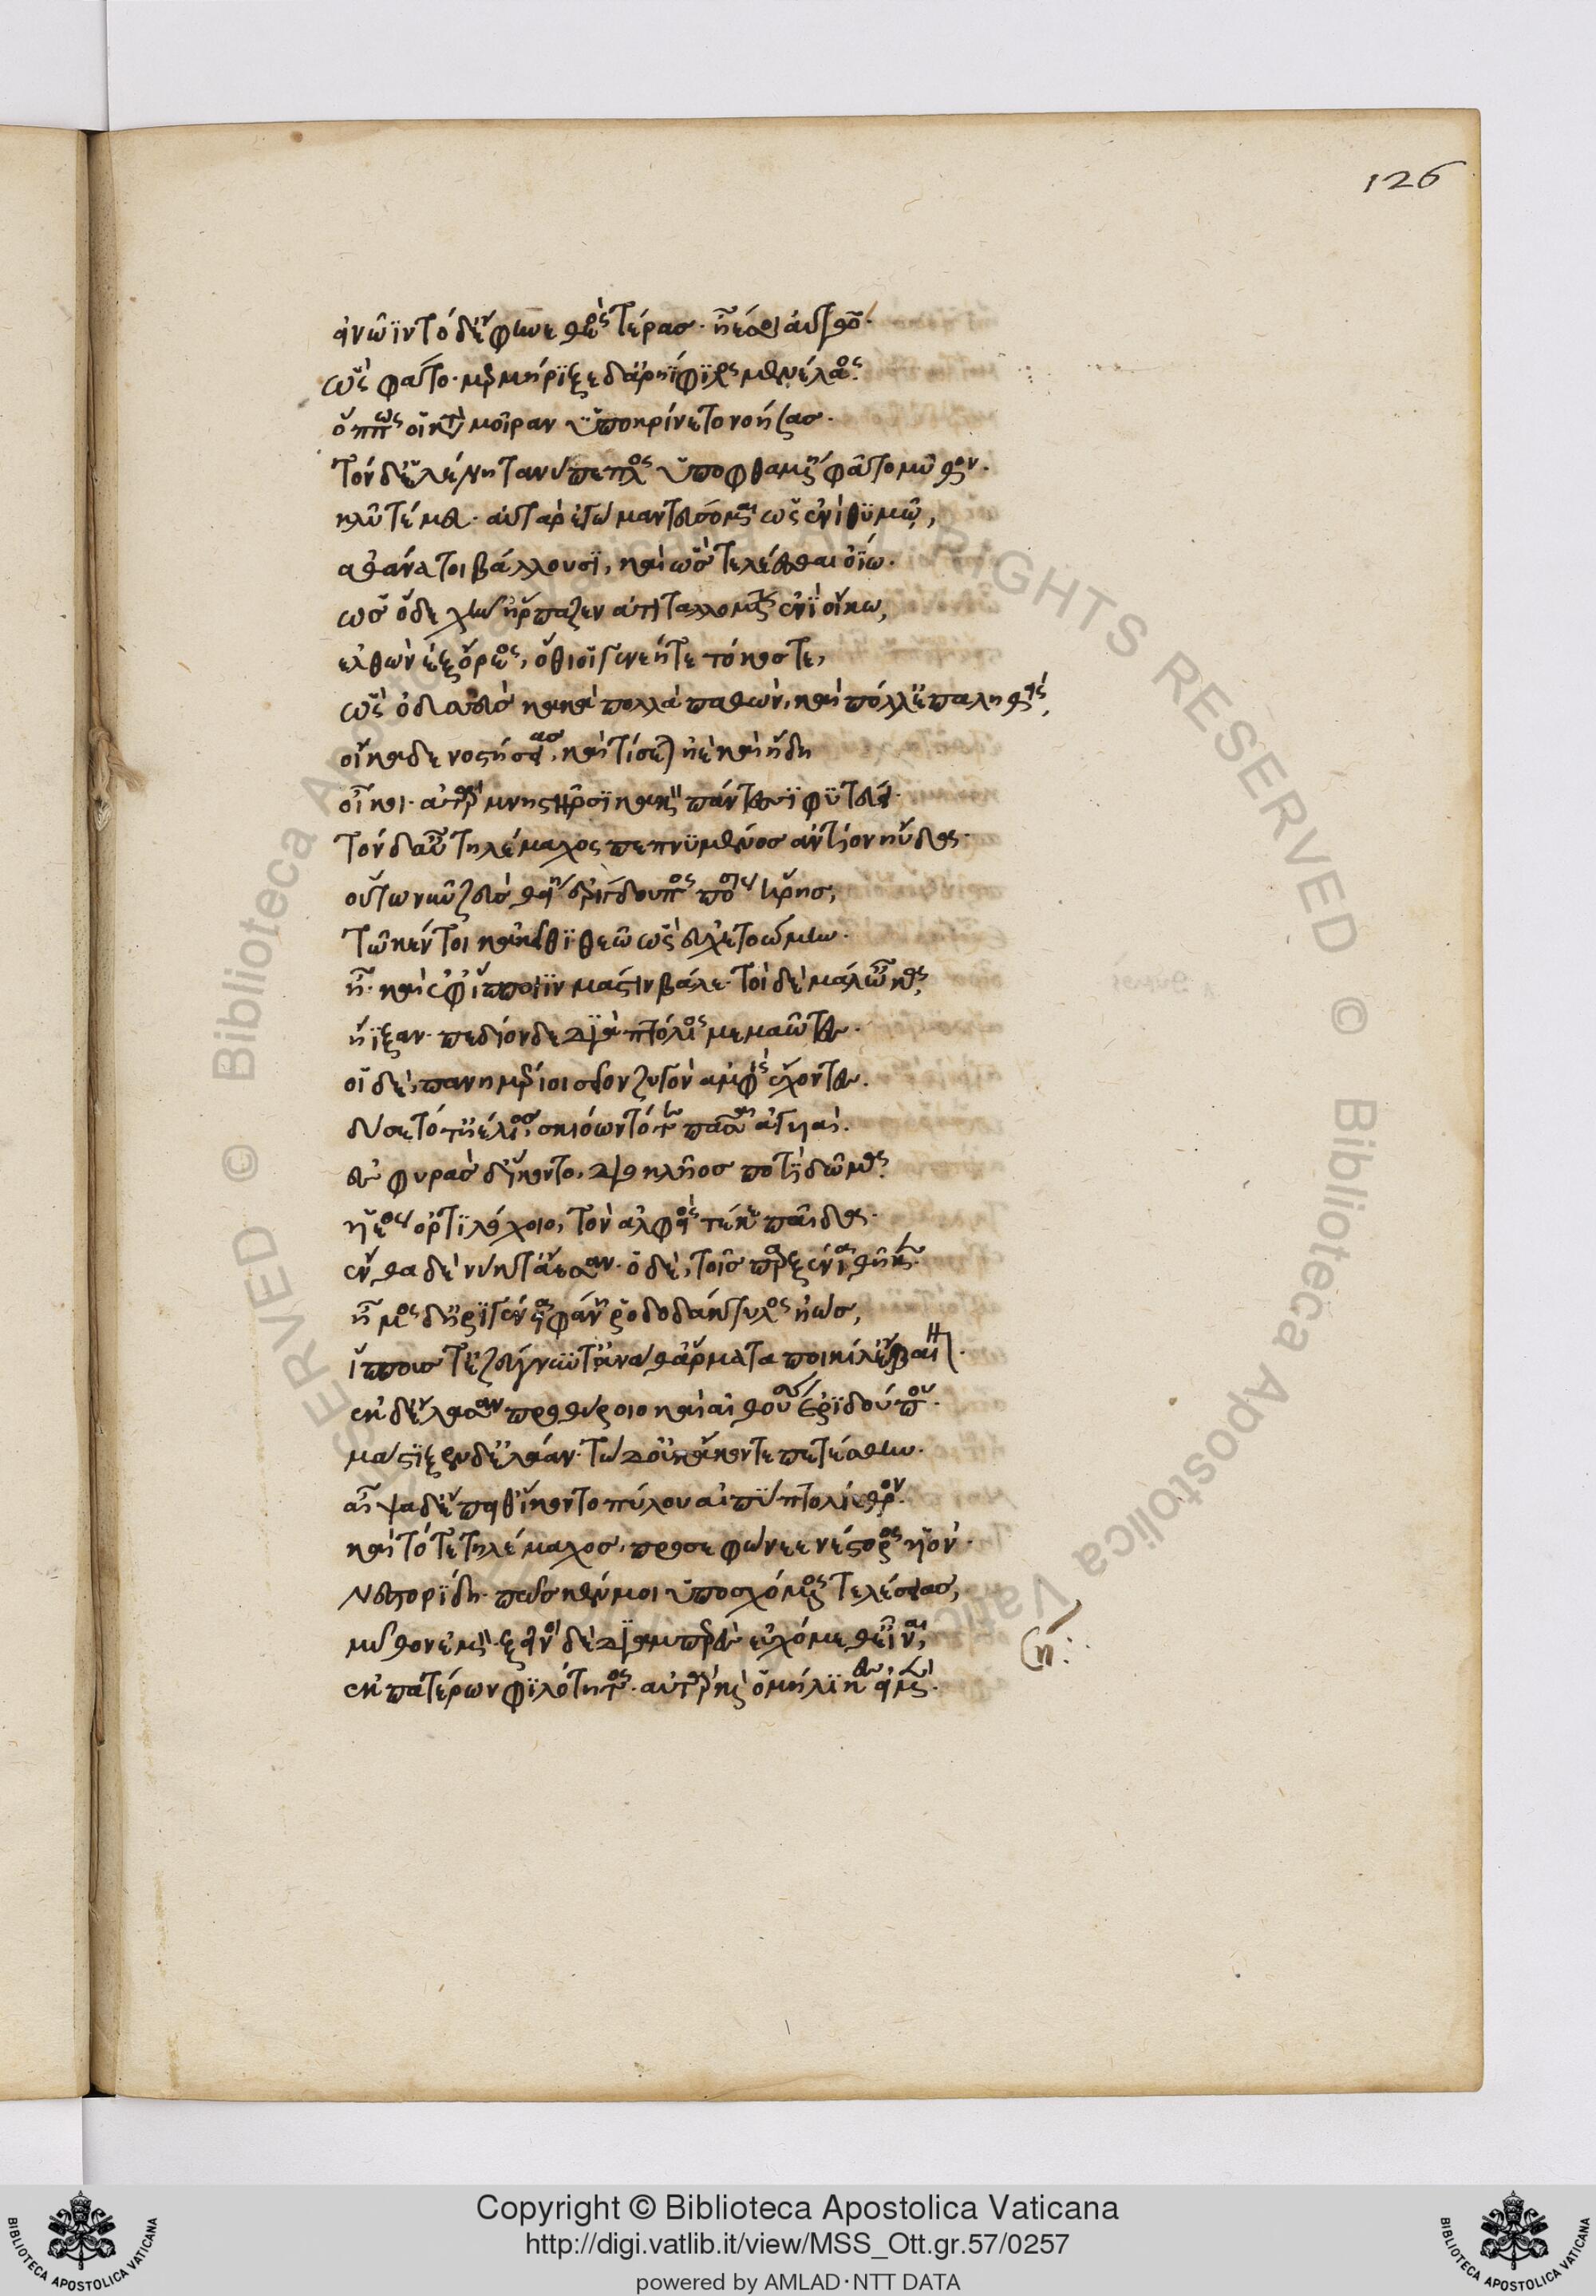 126
ἢ νῶϊν τόδ' ἔφηνε θεὸς τέρας. ἦε σοὶ αὐτῶ.
ὣς φάτο. μερμήριξε δ' ἀρηΐφιλος μενέλαος.
ὅππως οἱ κατὰ μοῖραν ὑποκρίνετο νοήσας.
τὸν δ' ἑλένη τανύπεπλος ὑποφθαμένη φάτο μῦθον.
κλῦτέ μευ. αὐτὰρ ἐγὼ μαντεύσομαι ὡς ἐνὶ θυμῶ,
ἀθάνατοι βάλλουσι, καὶ ὡς τελέεσθαι ὀΐω.
ὡς ὅδε χῆν' ἥρπαξεν ἀτιταλλομένην ἐνὶ οἴκω,
ἐλθὼν ἐξ ὄρεος, ὅθι οἱ γενεή τε τόκος τε,
ὣς ὀδυσεὺς κακὰ πολλὰ παθὼν, καὶ πόλλ' ἐπαληθεὶς,
οἴκαδε νοστήσας, καὶ τίσεται, ἠὲ καὶ ἤδη
οἴκοι. ἀτὰρ μνηστῆρσι κακὸν πάντεσσι φυτεύει.
τὸν δ' αὖ τηλέμαχος πεπνυμένος ἀντίον ηὔδα.
οὕτω νῦν ζεὺς θείη ἐρίγδουπος πόσις ἥρης,
τῶ κέν τοι καὶ κεῖθι θεῶ ὣς εὐχετοώμην.
ἦ. καὶ ἐφ' ἵπποιϊν μάστιν βάλε. τοὶ δὲ μάλ' ὦκα,
ἤϊξαν. πεδίονδε διὰ πτόλιος μεμαῶτες.
οἱ δὲ, πανημέριοι σεῖον ζυγὸν ἀμφὶς ἔχοντες.
δύσετό τ' ἠέλιος, σκιόωντό τε πᾶσαι ἀγυιαί.
ἐς φηρὰς δ' ἵκοντο, διοκλῆος ποτὶ δῶμα.
υἱέος ὀρτιλόχοιο, τὸν ἀλφειὸς τέκε παῖδα.
ἔνθα δὲ νύκτ' ἄεσαν. ὁ δὲ, τοῖς πὰρ ξείνια θῆκεν.
ἦμος δ' ἠριγένεια φάνη ῥοδοδάκτυλος ἠώς,
ἵππους τε ζεύγνυντ' ἀνά θ' ἅρματα ποικίλ' ἔβαινον.
ἐκ δ' ἔλασαν προθύροιο καὶ αἰθούσης ἐριδούπου.
μάστιξεν δ' ἐλάαν. τὼ δ' οὐκ ἄκοντε πετέσθην.
αἶψα δ' ἔπειθ' ἵκοντο πύλου αἰπὺ πτολίεθρον.
καὶ τότε τηλέμαχος, προσεφώνεε νέστορος υἱόν.
νεστορίδη. πῶς κέν μοι ὑποσχόμενος τελέσειας,
μῦθον ἐμόν. ξεῖνοι δὲ διαμπερὲς εὐχόμεθ' εἶναι,
ἐκ πατέρων φιλότητος. ἀτὰρ καὶ ὁμήλικές εἰμεν.